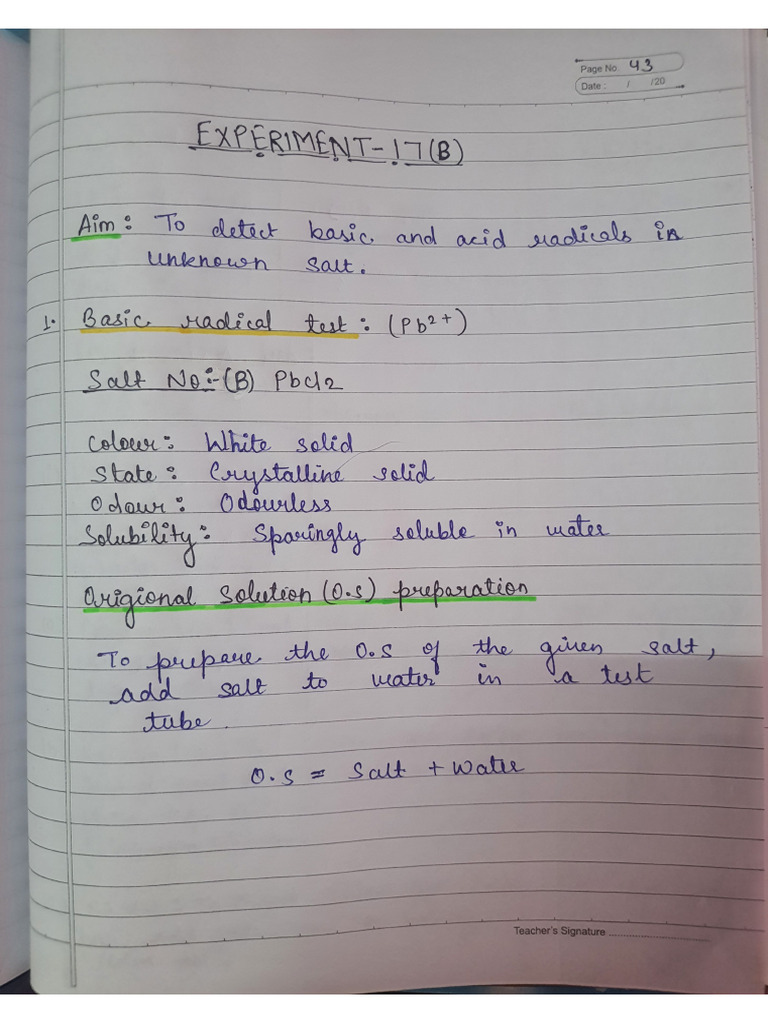 Page No. 43
Date : / /20
EXPERIMENT-17(B)
Aim: To detect basic and acid radicals in
unknown salt.
1. Basic radical test: (Pb2+)
Salt No:-(B) Pbcl2
Colour: White solid
State: Crystalline solid
Odour: Odourless
Solubility: Sparingly soluble in water
Origional Solution (O.S) preparation
To prepare the O.S of the given salt,
add salt to water in a test
tube.
O.S = Salt + Water
Teacher's Signature ........................